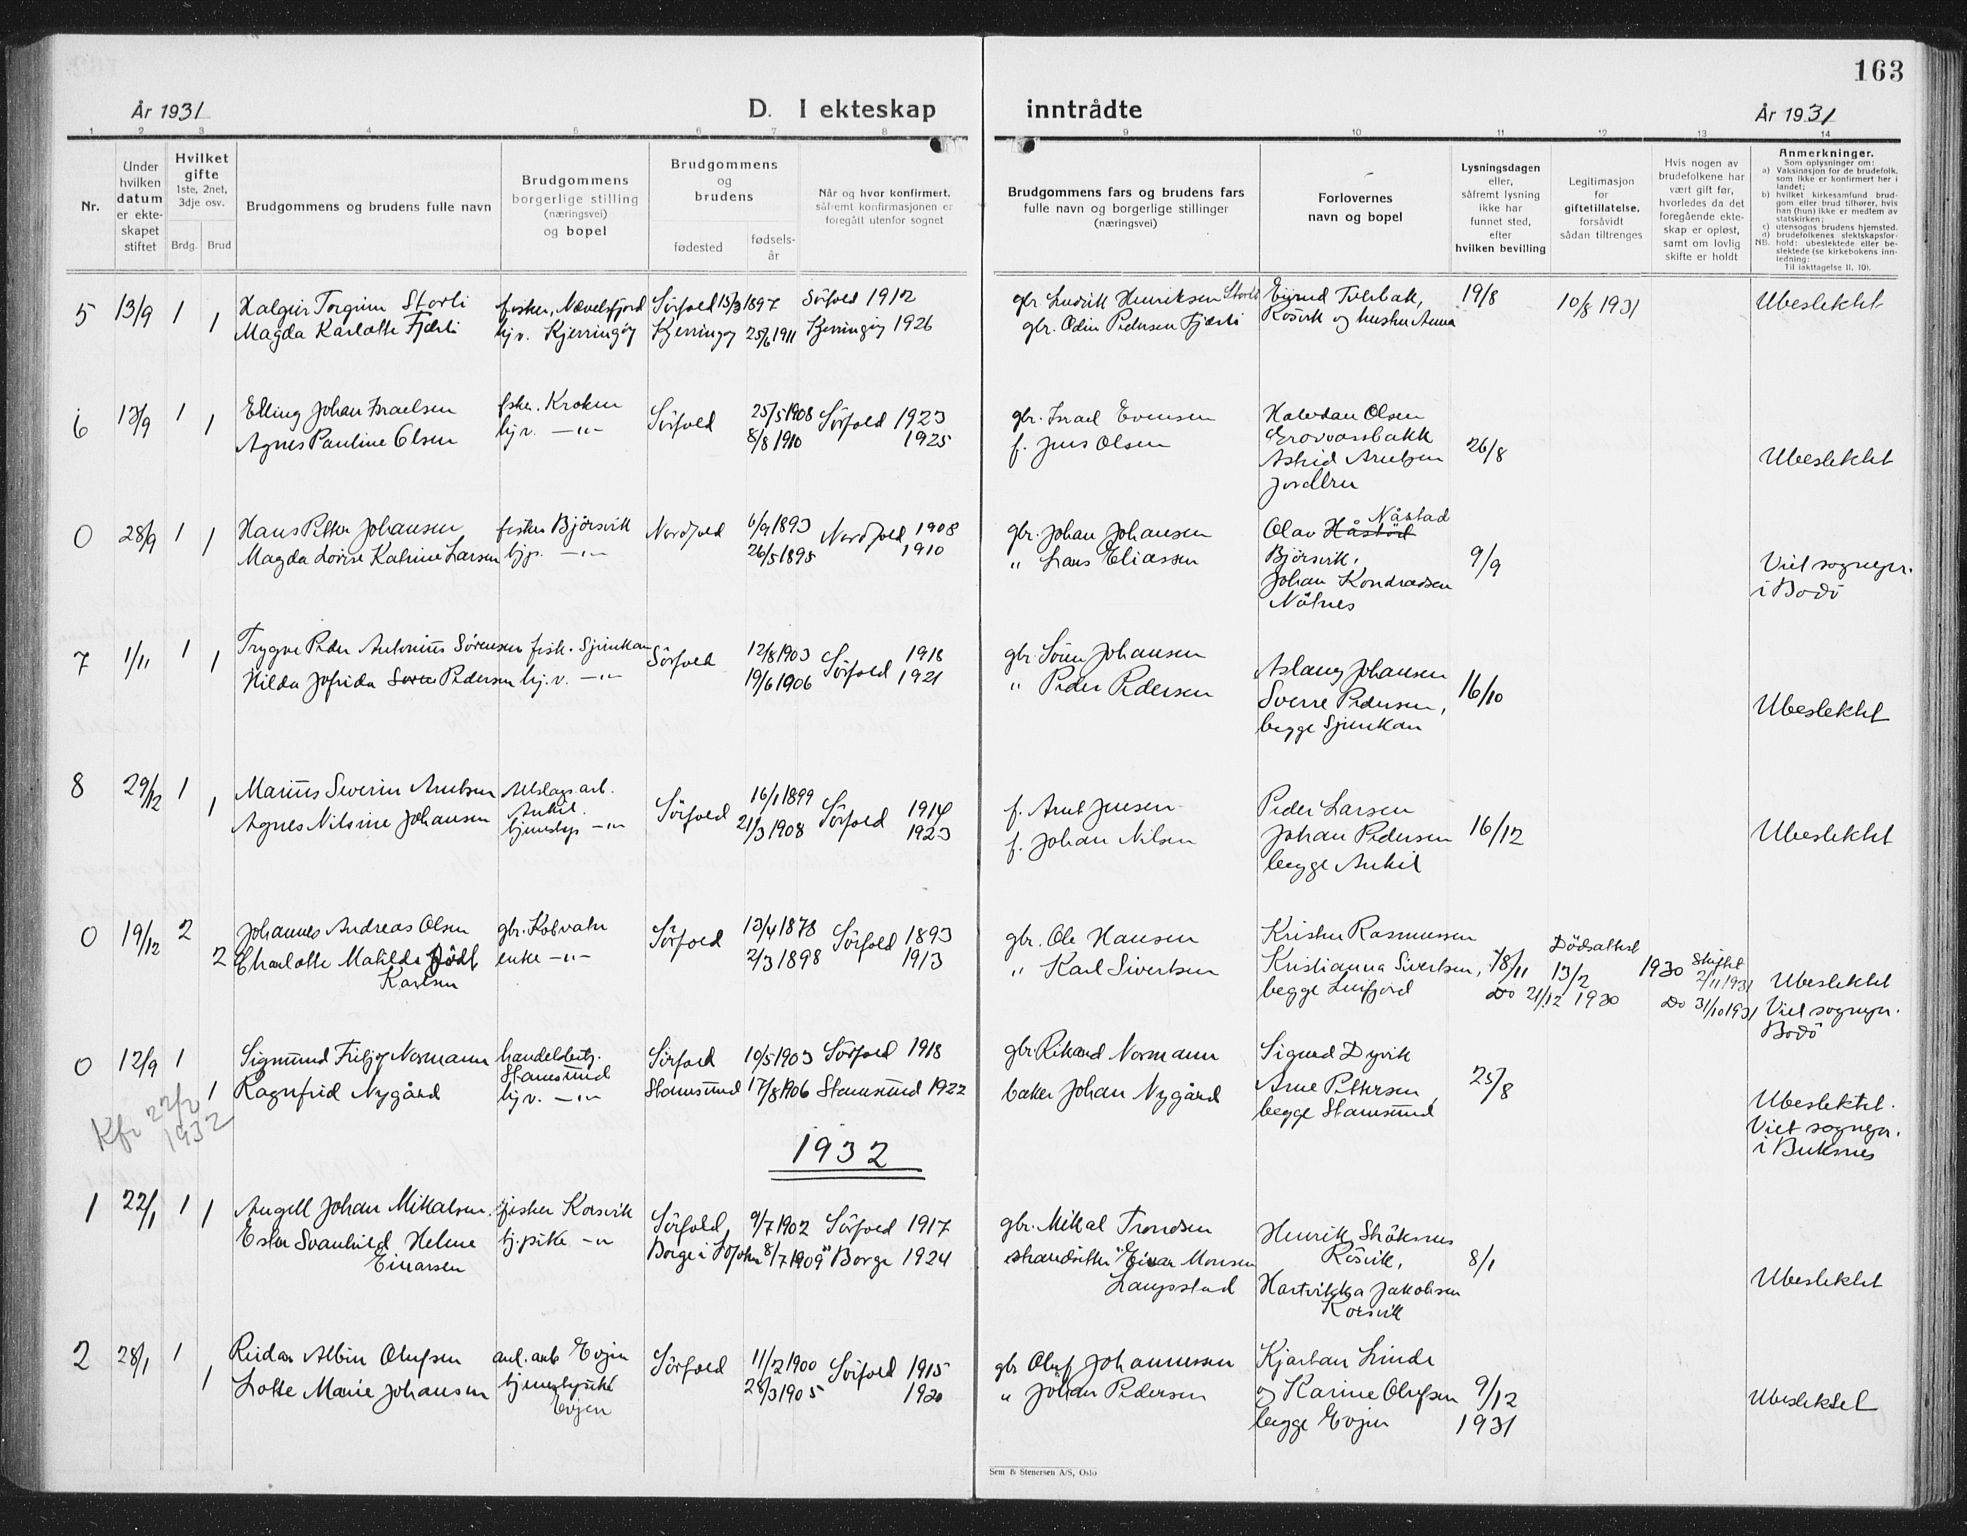 163
År 1931 D. I ekteskap inntrådte År 1931
1 2 3 4 5 6 7 8 9 10 11 12 13 14
Nr.
Under hvilken datum er ekteskapet stiftet
Hvilket gifte 1ste, 2net, 3dje osv.
Brdg. Brud
Brudgommens og brudens fulle navn
Brudgommens borgerlige stilling (næringsvei) og bopel
Brudgommens og brudens
fødested
fødselsår
Når og hvor konfirmert, såfremt konfirmasjonen er foregått utenfor sognet
Brudgommens fars og brudens fars fulle navn og borgerlige stillinger (næringsvei)
Forlovernes navn og bopel
Lysningsdagen eller, såfremt lysning ikke har funnet sted, efter hvilken bevilling
Legitimasjon for giftetillatelse, forsåvidt sådan tiltrenges
Hvis nogen av brudefolkene har vært gift før, hvorledes da det foregående ekteskap er opløst, samt om lovlig skifte er holdt
Anmerkninger.
Som oplysninger om:
a) Vaksinasjon for de brudefolk, som ikke er konfirmert her i landet;
b) hvilket kirkesamfund brudgom eller brud tilhører, hvis han (hun) ikke er medlem av statskirken;
c) utensogns brudens hjemsted.
d) brudefolkenes slektskapsforhold: ubeslektede eller beslektede (se kirkebokens innledning: Til iakttagelse II, 10).
NB.
5 13/9 1 Storli fisker, Sørfold 15/3 1897 Sørfold 1912 gbr. Henriksen Storli 19/8 10/8 1931 Ubeslektet
1 Magda Karlotte Fjærli hj.v. Kjerringøy Kjerringøy 25/6 1911 Kjerringøy 1926 gbr. Odin Pedersen Fjærli Røsvik og hustru Anna
6 13/9 1 Elling Johan Israelsen fisker. Kroken Sørfold 25/5 1908 Sørfold 1923 gbr. Israel Evensen Halvdan Olsen
1 Agnes Pauline Olsen hj.v. -"- 8/8 1910 1925 f. Jens Olsen 26/8 Ubeslektet
Astrid Arntsen
0 28/9 1 Hans Petter Johansen fisker Bjørsvik Nordfold 6/9 1893 Nordfold 1908 gbr. Johan Johansen Olav Nåstad
1 Magda Lovise Katrine Larsen hjp. -"- 26/5 1895 1910 " Lars Eliassen Bjørsvik, 9/9 Viet sognepr.
Johan Kondradsen i Bodø
7 1/11 1 Trygve Peder Antonius Sørensen fisk. Sjunkan Sørfold 12/8 1903 Sørfold 1918 gbr. Søren Johansen Aslaug Johansen
1 Hilda Jofrida Pedersen hj.v. -"- 19/6 1906 1921 " Peder Pedersen Sverre Pedersen, 16/10 Ubeslektet
begge Sjunkan
8 29/12 1 Marius Severin Arntsen Sørfold 16/1 1899 Sørfold 1914 f. Arnt Jensen Peder Larsen
1 Agnes Nilsine Johansen -"- 21/3 1908 1923 f. Johan Nilsen Johan Pedersen 16/12 Ubeslektet
begge
0 19/12 2 Johannes Andreas Olsen gbr. Kobvatn Sørfold 13/4 1878 Sørfold 1893 gbr. Ole Hansen Kristen Rasmussen Dødsattest
2 Charlotte Matilde født enke -"- 2/3 1898 1913 " Karl Sivertsen Kristianna Sivertsen, 18/11 13/2 1930 Skiftet 2/11 1931 Ubeslektet
Karlsen begge Leirfjord Do 21/12 1930 Do 31/10 1931 Viet sognepr.
Bodø
0 12/9 1 Sigmund Fritjof Normann handelsbetj. Sørfold 10/5 1903 Sørfold 1918 gbr. Rikard Normann Sigurd Dyvik
Stamsund
1 Ragnfrid Nygård hj.v. -"- Stamsund 17/8 1906 Stamsund 1922 baker Johan Nygård Arne Pettersen 25/8 Ubeslektet.
Kfr 22/2 1932 begge Stamsund Viet sognepr.
i Buksnes
1932
1 22/1 1 1 Angell Johan Mikalsen fisker Korsvik Sørfold 9/7 1902 Sørfold 1917 gbr. Mikal Trondsen Henrik Strøksnes
Ester Svanhild Helene tj.pike -"- Borge i Lofoten 8/7 1909 Borge 1924 strandsitter Einar Monsen Røsvik, 8/1
Einarsen Laupstad Hartvikka Jakobsen Ubeslektet
Korsvik
2 28/1 1 Reidar Albin Olufsen anl. arb Evjen Sørfold 11/2 1900 Sørfold 1915 gbr Oluf Johannessen Kjartan Linde
1 Lotte Marie Johansen tjenestepike 28/3 1905 1920 " Johan Pedersen og Karine Olufsen 9/12 Ubeslektet
Evjen begge Evjen 1931
Sem & Stenersen A/S, Oslo